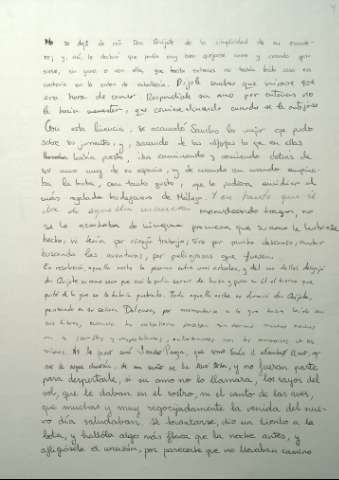 No se dejó de reír Don Quijote de la simplicidad de su escude-
ro; y, así, le declaró que podía muy bien quejarse como y cuando qui-
siese, sin gana o con ella, que hasta entonces no había leído cosa en
contrario en la orden de caballería. Díjole Sancho que mirase que
era hora de comer. Respondióle su amo que por entonces no
le hacía menester; que comiese él cuando se le antojase.
Con esta licencia, se acomodó Sancho lo mejor que pudo
sobre su jumento, y, sacando de las alforjas lo que en ellas
había puesto, iba caminando y comiendo detrás de
su amo muy de su espacio, y de cuando en cuando empina-
ba la bota, con tanto gusto, que le pudiera envidiar el
más regalado bodegonero de Málaga. Y en tanto que él
iba de aquella manera menudeando tragos, no
se le acordaba de ninguna promesa que su amo le hubiese
hecho, ni tenía por ningún trabajo, sino por mucho descanso, andar
buscando las aventuras, por peligrosas que fuesen.
En resolución, aquella noche la pasaron entre unos árboles, y del uno dellos desgajó
Don Quijote un ramo seco que casi le podía servir de lanza, y puso en él el hierro que
quitó de la que se le había quebrado. Toda aquella noche no durmió Don Quijote,
pensando en su señora Dulcinea, por acomodarse a lo que había leído en
sus libros, cuando los caballeros pasaban sin dormir muchas noches
en las florestas y despoblados, entretenidos con las memorias de sus
señoras. No la pasó ansí Sancho Panza, que, como tenía el estómago lleno, y
no de agua de chicoria, de un sueño se la llevó toda, y no fueran parte
para despertarle, si su amo no lo llamara, los rayos del
sol, que le daban en el rostro, ni el canto de las aves,
que muchas y muy regocijadamente la venida del nue-
vo día saludaban. Al levantarse, dio un tiento a la
bota, y hallóla algo más flaca que la noche antes, y
afligiósele el corazón, por parecerle que no llevaban camino